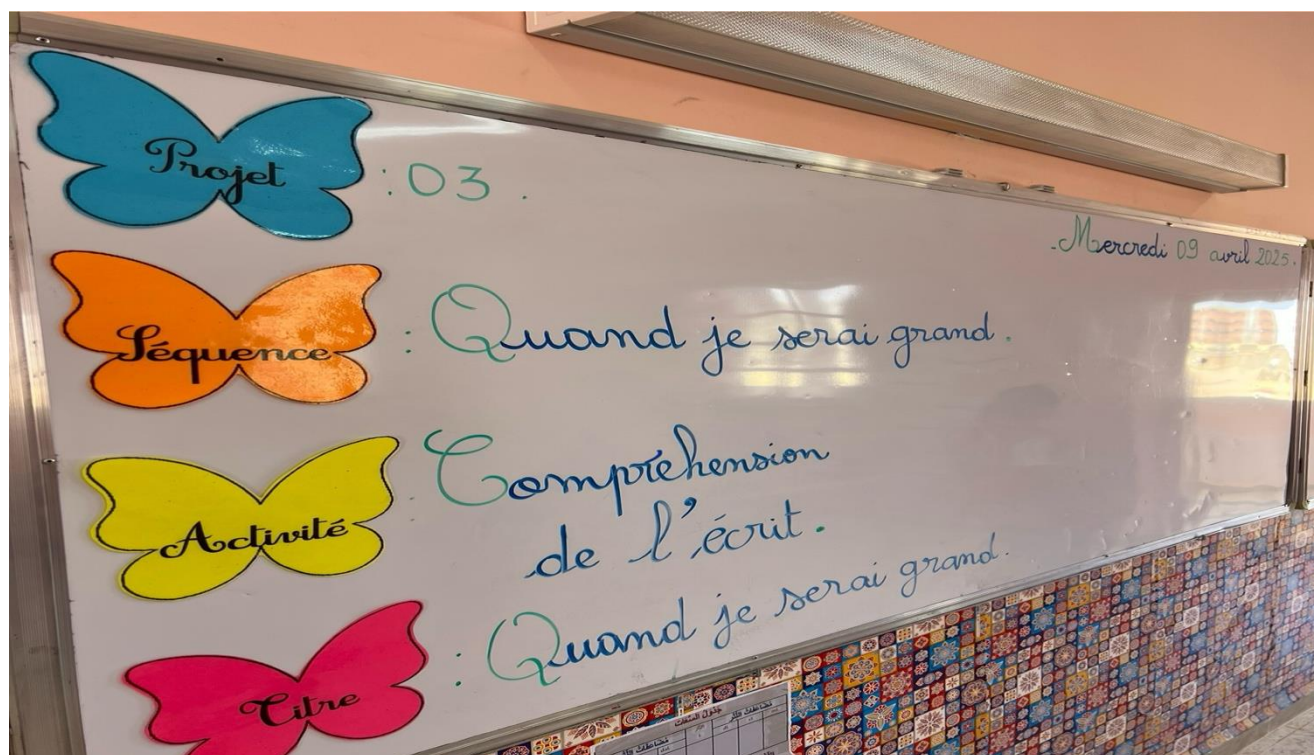 Projet : 03.
Mercredi 09 avril 2025.
Séquence : Quand je serai grand.
Activité Compréhension
de l'écrit.
Titre : Quand je serai grand.